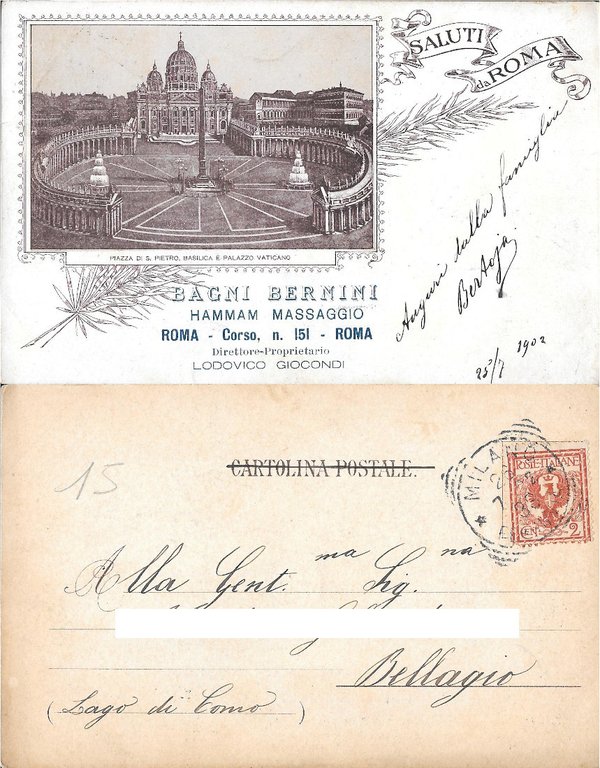 SALUTI
da ROMA
PIAZZA DI S. PIETRO, BASILICA E PALAZZO VATICANO
Auguri dalla famiglia
Bertoja
25/7 1902
BAGNI BERNINI
HAMMAM MASSAGGIO
ROMA - Corso, n. 151 - ROMA
Direttore-Proprietario
LODOVICO GIOCONDI
15
CARTOLINA POSTALE.
MILANO
POSTE ITALIANE
CEN. 2
Alla Gent.ma Sig.na
Bellagio
(Lago di Como)